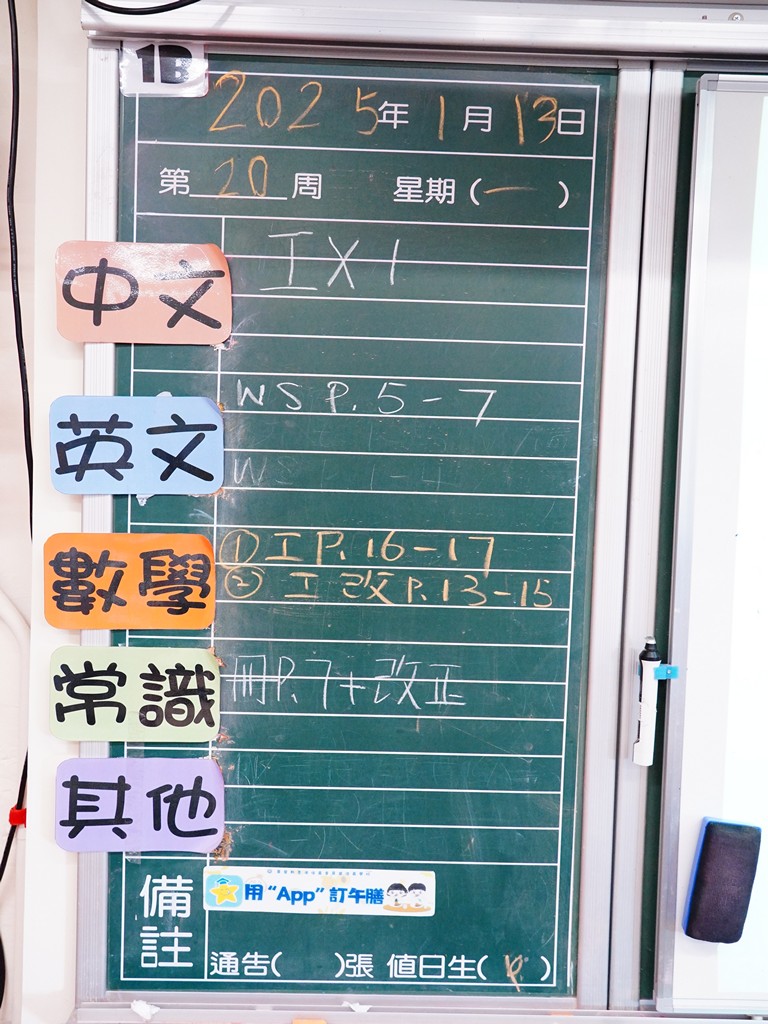 1B
2025年1月13日
第20周 星期(一)
中文 工X1
英文 WS P.5-7
W
數學 ①工P.16-17
②工改P.13-15
常識 冊P.7+改正
其他
備註 用“App”訂午膳
通告( )張 值日生( )